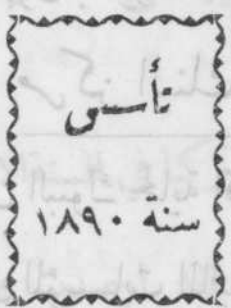 تأسس
سنة ١٨٩٠